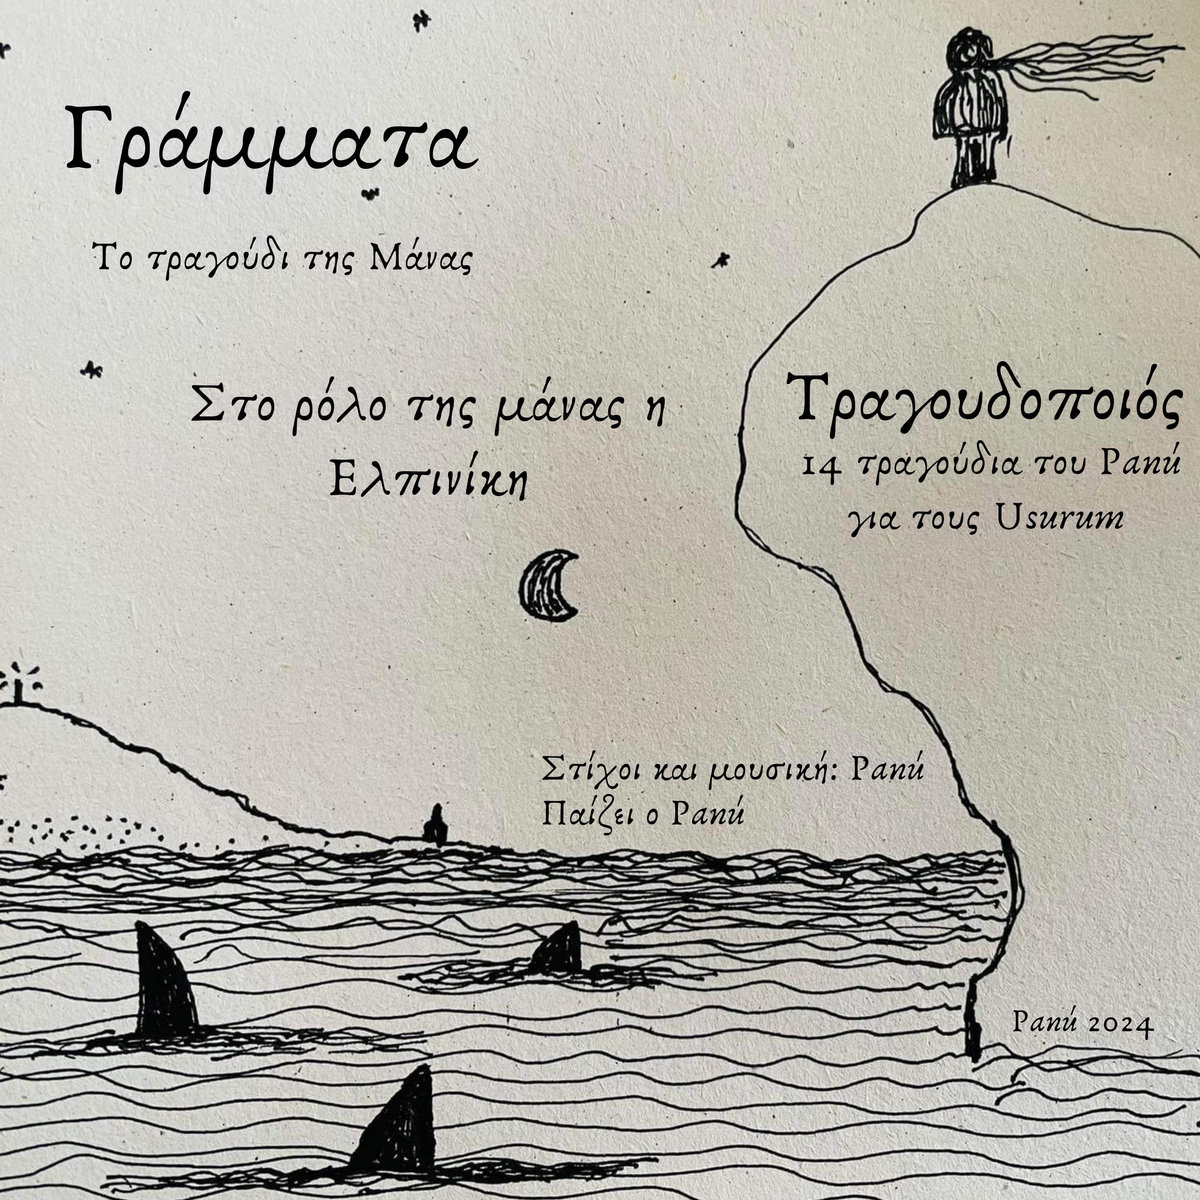 Γράμματα
Το τραγούδι της Μάνας
Στο ρόλο της μάνας η
Ελπινίκη
Τραγουδοποιός
14 τραγούδια του Panú
για τους Usurum
Στίχοι και μουσική: Panú
Παίζει ο Panú
Panú 2024